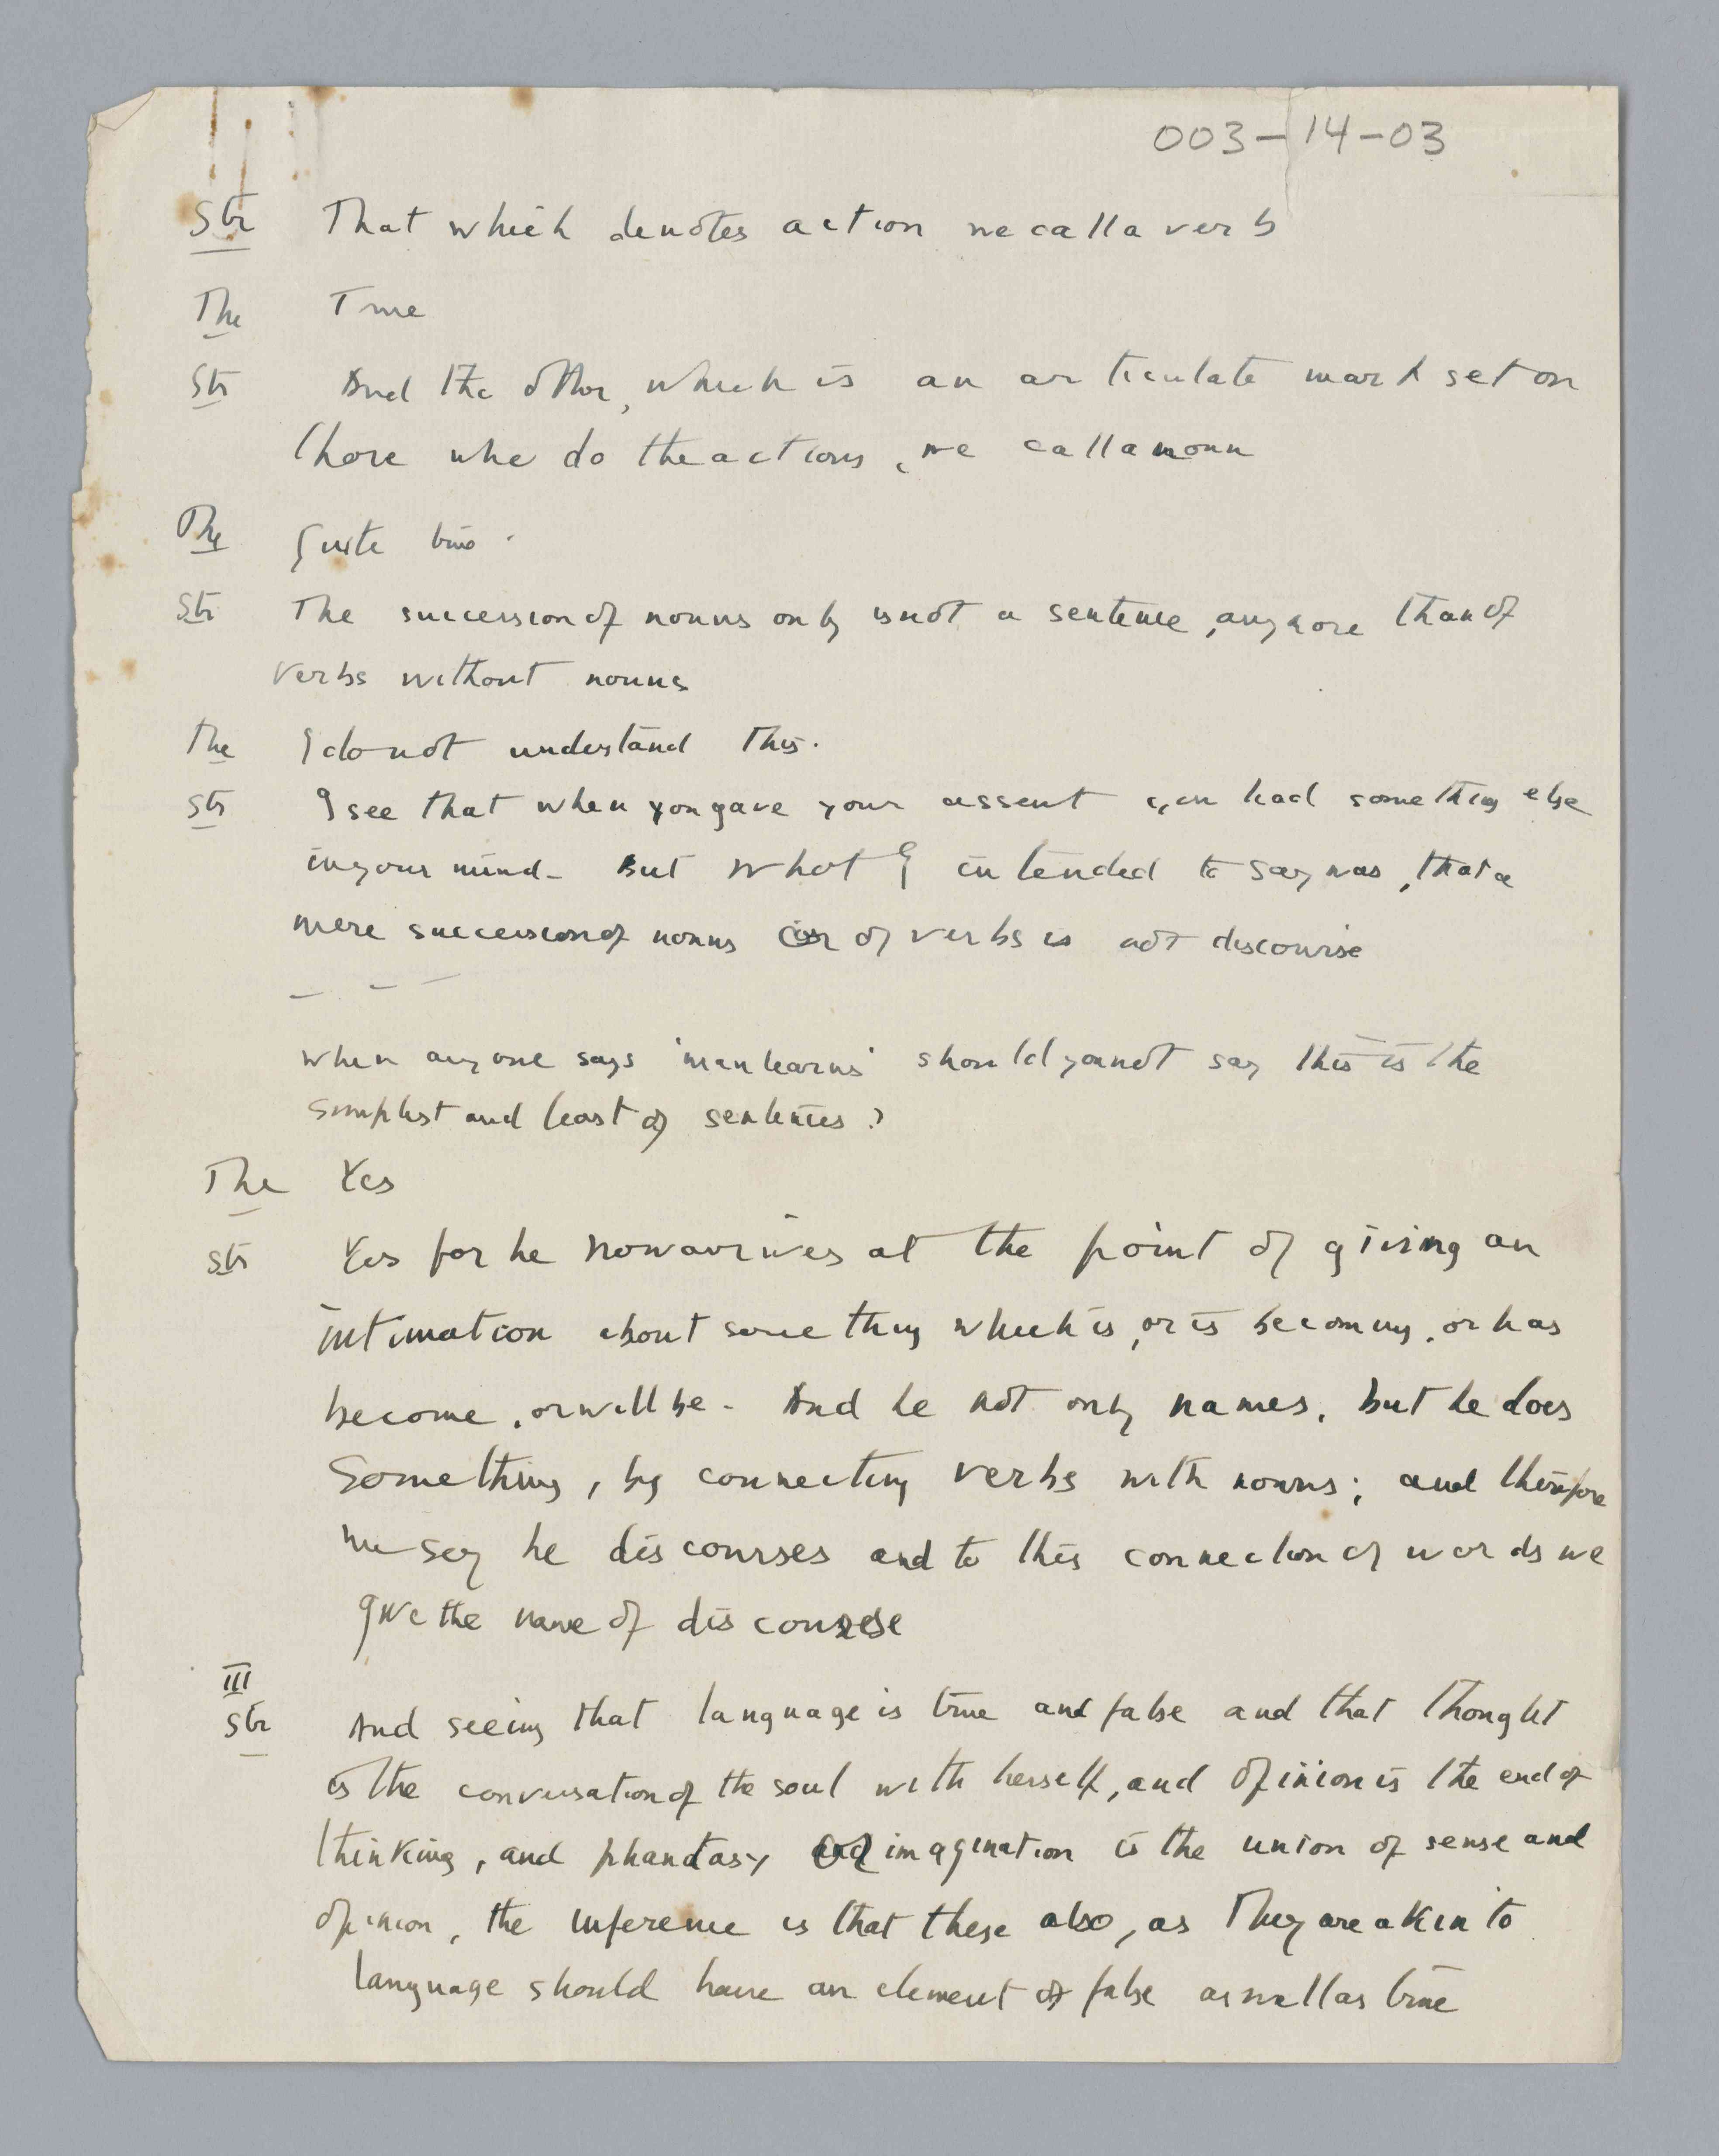 003-14-03
Str That which denotes action we call a verb
The True
Str And the other, which is an articulate mark set on
those who do the actions, we call a noun
The Quite true.
Str The succession of nouns only is not a sentence, any more than of
verbs without nouns
The I do not understand this.
Str I see that when you gave your assent you had something else
in your mind - But what I intended to say was, that a
mere succession of nouns or of verbs is not discourse
- - -
when anyone says 'man learns' should you not say this is the
simplest and least of sentences?
The Yes
Str Yes for he now arrives at the point of giving an
intimation about something which is, or is becoming, or has
become, or will be - And he not only names, but he does
something, by connecting verbs with nouns; and therefore
we say he discourses and to this connection of words we
give the name of discourse
III
Str And seeing that language is true and false and that thought
is the conversation of the soul with herself, and opinion is the end of
thinking, and phantasy or imagination is the union of sense and
opinion, the inference is that these also, as they are akin to
language should have an element of false as well as true